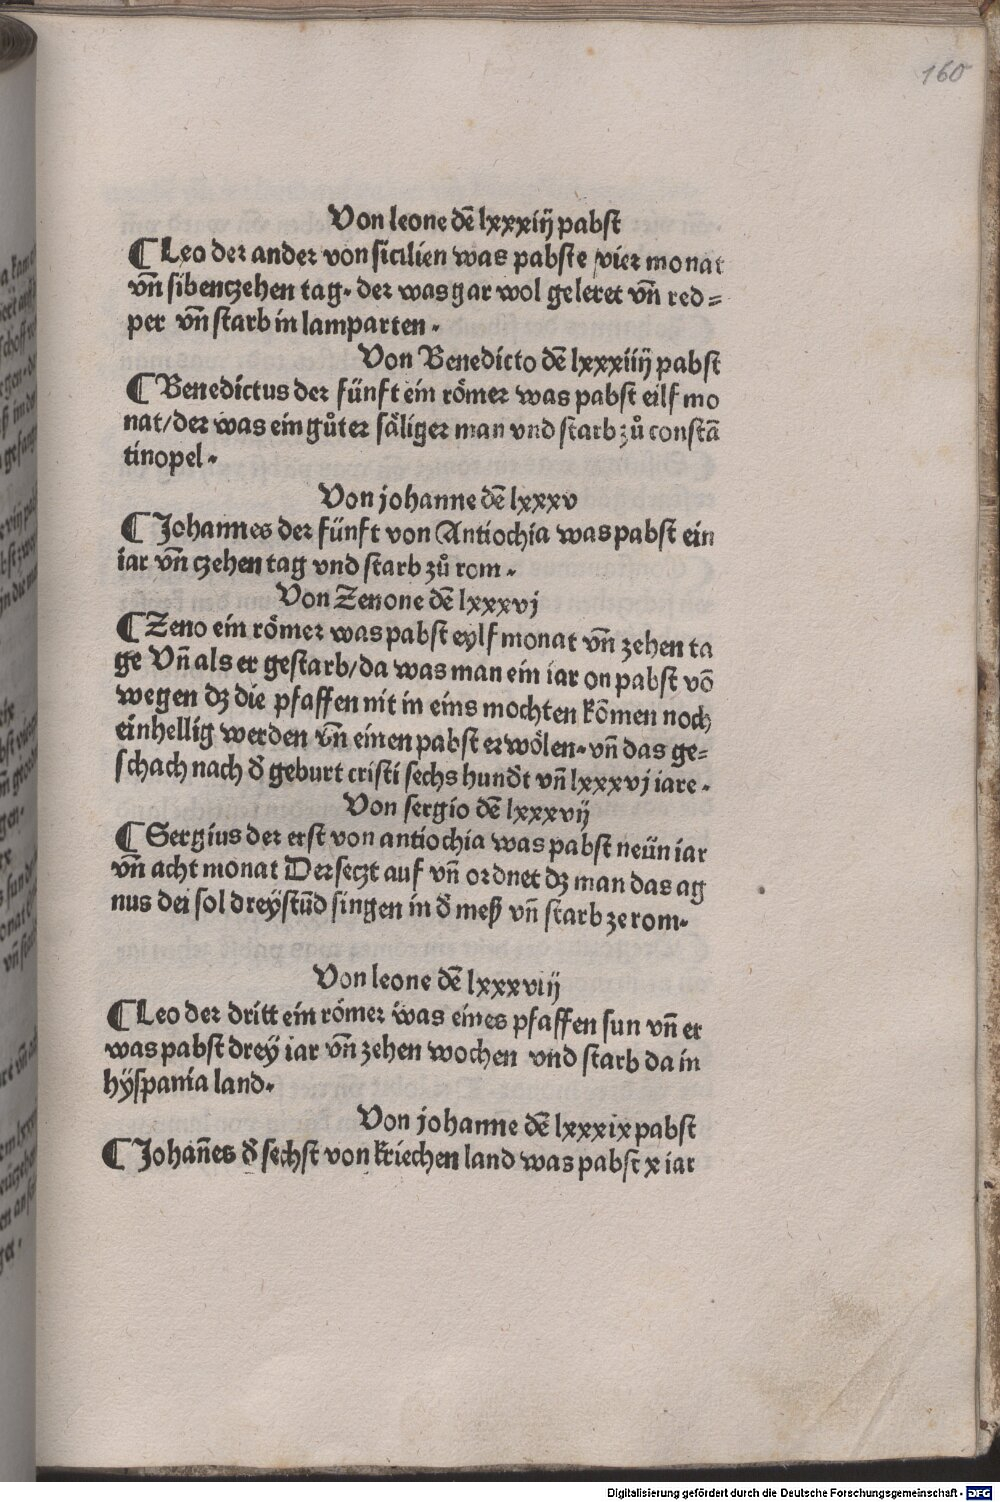 160
Von leone dē lxxxiij pabst
¶ Leo der ander von sicilien was pabste vier monat
vn̄ sibenczehen tag. der was gar wol geleret vn̄ red=
per vn̄ starb in lamparten.
Von Benedicto dē lxxxiiij pabst
¶ Benedictus der fünft ein römer was pabst eilf mo
nat/der was ein gůter säliger man vnd starb zů constā
tinopel.
Von johanne dē lxxxv
¶ Johannes der fünft von Antiochia was pabst ein
iar vn̄ czehen tag vnd starb zů rom.
Von Zenone dē lxxxvj
¶ Zeno ein römer was pabst eylf monat vn̄ zehen ta
ge Vn̄ als er gestarb/da was man ein iar on pabst vō
wegen dz die pfaffen nit in eins mochten kōmen noch
einhellig werden vn̄ einen pabst erwölen. vn̄ das ge=
schach nach d̄ geburt cristi sechs hund̄t vn̄ lxxxvj iare.
Von sergio dē lxxxvij
¶ Sergius der erst von antiochia was pabst neün iar
vn̄ acht monat Der seczt auf vn̄ ordnet dz man das ag
nus dei sol dreystūd singen in d̄ meß vn̄ starb ze rom.
Von leone dē lxxxviij
¶ Leo der dritt ein römer was eines pfaffen sun vn̄ er
was pabst drey iar vn̄ zehen wochen vnd starb da in
hÿspania land.
Von johanne dē lxxxix pabst
¶ Johan̄es d̄ sechst von kriechen land was pabst x iar
Digitalisierung gefördert durch die Deutsche Forschungsgemeinschaft - DFG